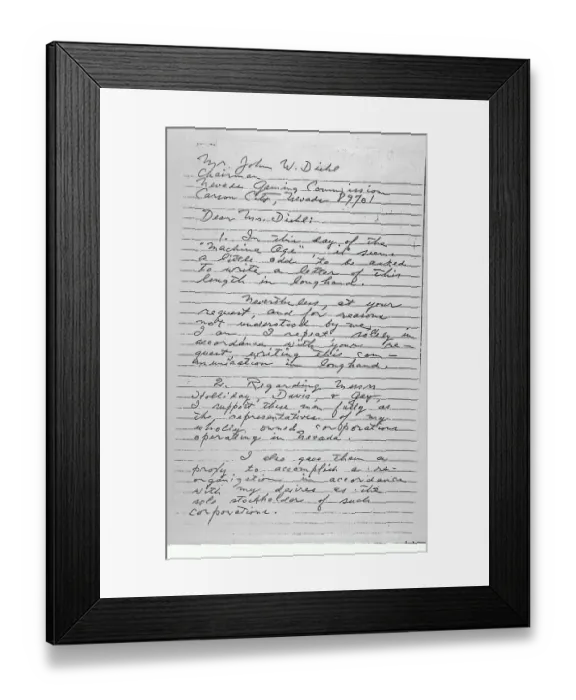 Mr. John W. Diehl
Chairman
Nevada Gaming Commission
Carson City, Nevada 89701
Dear Mr. Diehl:
1. In this day of the
"Machine Age" it seems
a little odd to be asked
to write a letter of this
length in longhand.
Nevertheless, at your
request, and for reasons
not understood by me,
I am, I repeat, solely in
accordance with your re-
quest, writing this com-
munication in longhand.
2. Regarding Messrs
Holliday, Davis, & Gay,
I support these men fully as
the representatives of my
wholly owned corporations
operating in Nevada.
I also gave them a
proxy to accomplish a re-
organization in accordance
with my desires as the
sole stockholder of such
corporations.